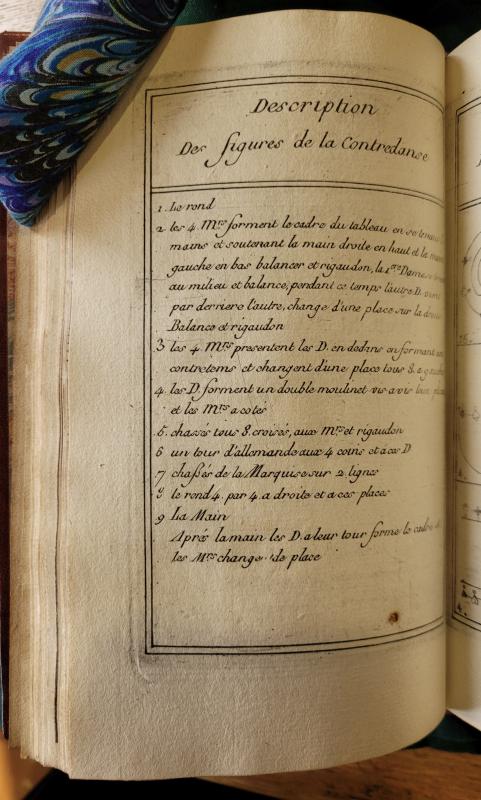 Description
Des figures de la Contredanse
1. Le rond
2 les 4. Mrs forment le cadre du tableau en se tenant
mains et soutenant la main droite en haut et la main
gauche en bas balancer et rigaudon, la 1ere Dame
au milieu et balance, pendant ce temps l'autre D. vient
par derriere l'autre, change d'une place sur la droite
Balance et rigaudon
3 les 4. Mrs presentent les D. en dedans en formant un
contretems et changent d'une place tous 8. a gauche
4. les D. forment un double moulinet vis a vis leur
et les Mrs a cotés
5. chassés tous 8. croisés, aux Mrs et rigaudon
6 un tour d'allemande aux 4 coins et a ces D
7 chaßés de la Marquise sur 2. lignes
8 le rond 4. par 4. a droite et a ces places
9 La Main
Aprés la main les D. a leur tour forme le cadre
les Mrs change de place
4.